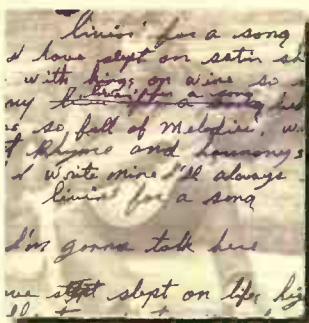 livin' for a song
I have slept on satin sh
with kings on wine so
my livin' for a song
so full of Melodies, w
Rhyme and harmonys
I write mine I'll always
livin' for a song
I'm gonna talk here
ve slept slept on life hig